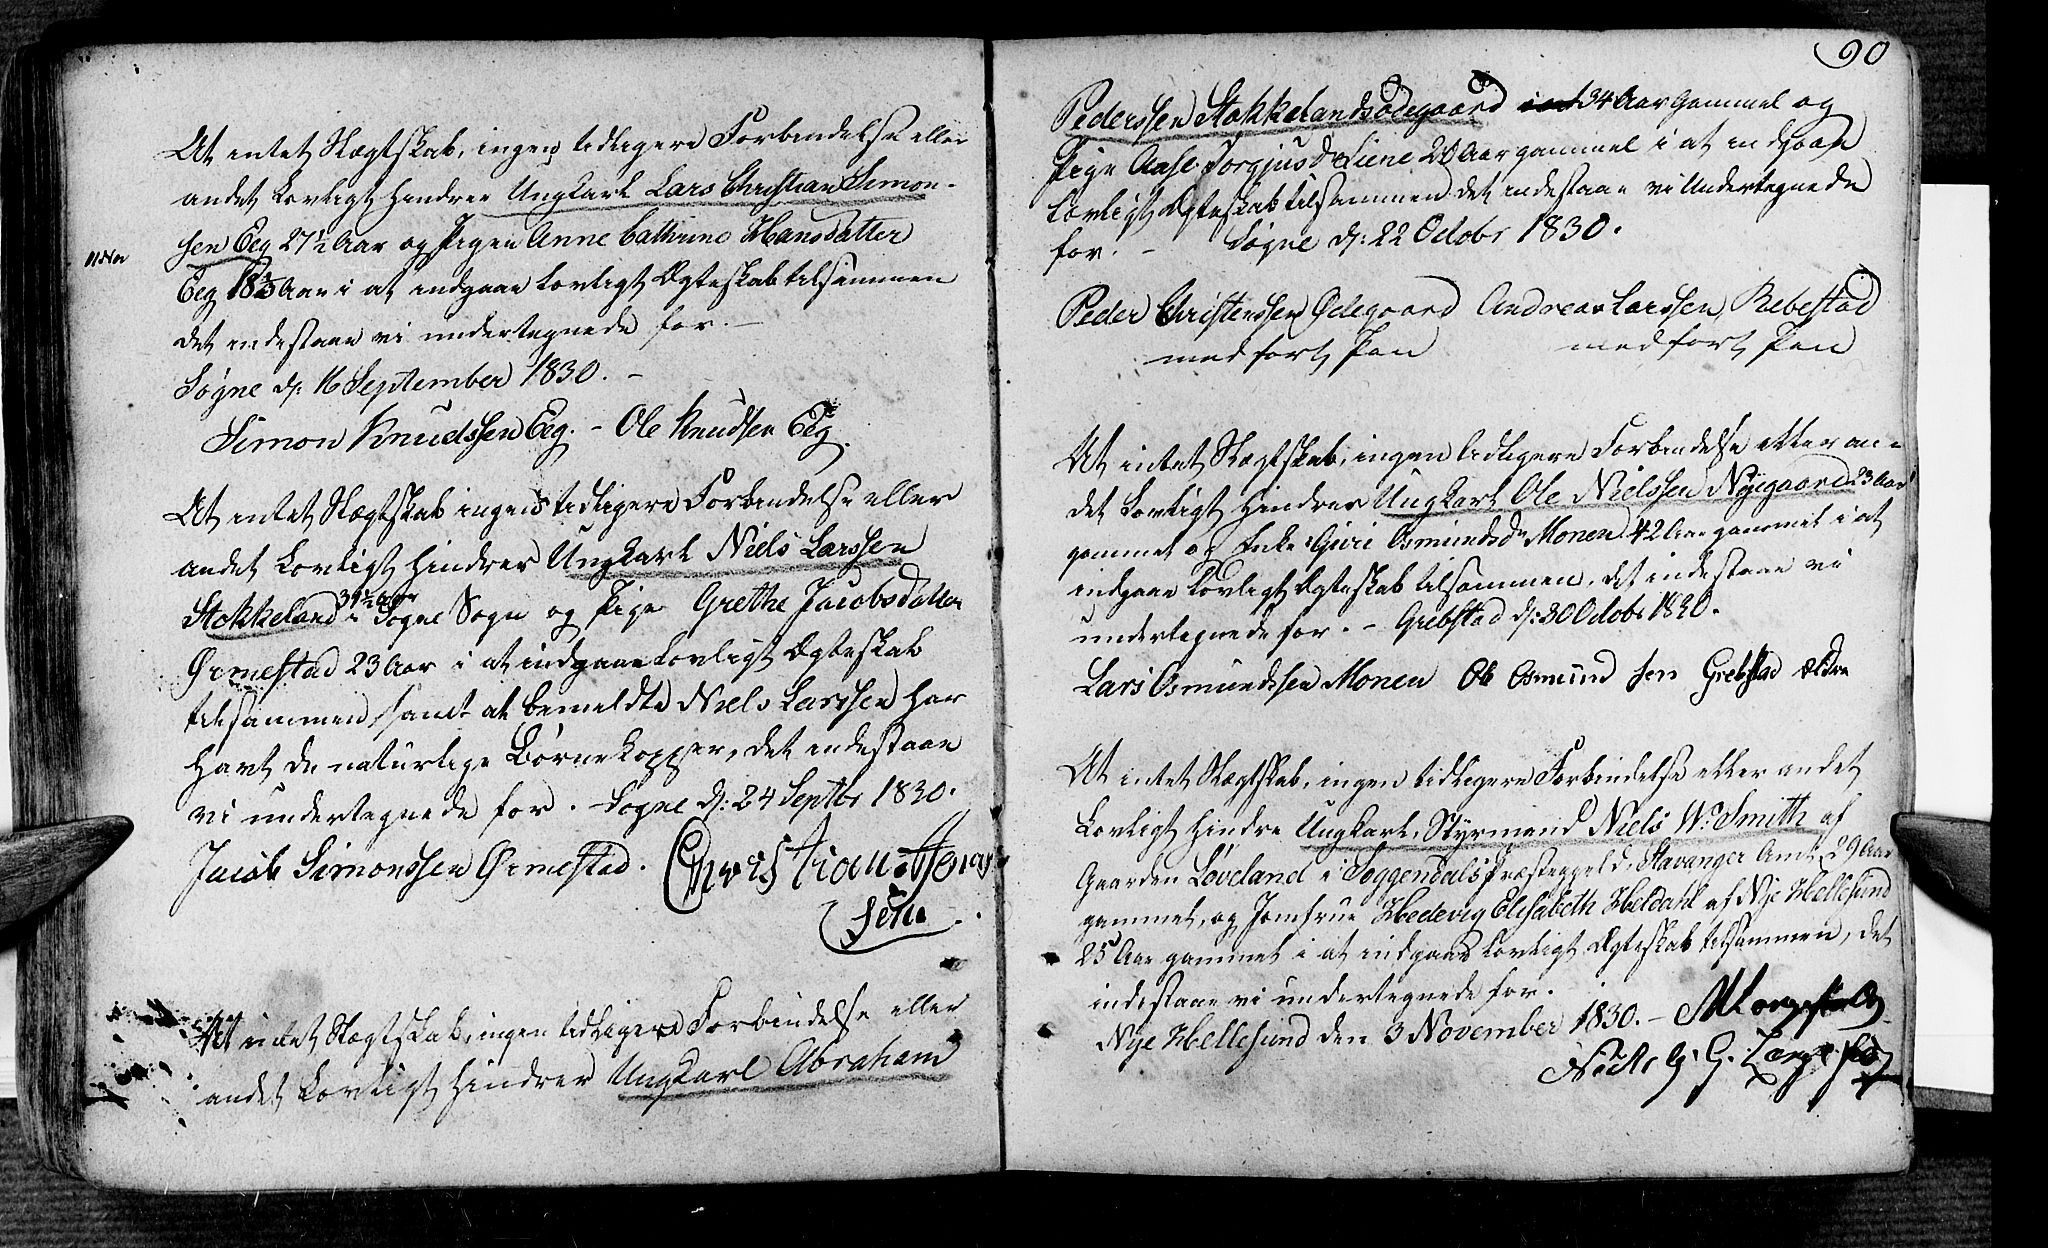 At intet Slægtskab, ingen tidligere Forbindelse eller
andet Lovligt hindrer Ungkarl Lars Christian Simon-
sen Eeg 27½ Aar og Pigen Anne Cathrine Hansdatter
11 Nov
Eeg 18⅔ Aar i at indgaae Lovligt Ægteskab tilsammen
det indestaae vi undertegnede for. -
Søgne d: 16 September 1830. -
Simon Knudssen Eeg. - Ole Knudsen Eeg.
At intet Slægtskab ingen tidligere Forbindelse eller
andet Lovligt hindrer Ungkarl Niels Larssen
Stokkeland 31½ Aar i Søgne Sogn og Pige Grethe Jacobsdatter
Ørmestad 23 Aar i at indgaae Lovligt Ægteskab
tilsammen, samt at bemeldte Niels Larssen har
havt de naturlige Børnekopper, det indestaae
vi undertegnede for. - Søgne d: 24 Septbr 1830.
Jacob Simonssen Ørmestad. Christian
At intet Slægtskab, ingen tidligere Forbindelse eller
andet Lovligt hindrer Ungkarl Abraham
90
Pederssen Stokkelandsødegaard 34 Aar Gammel og
Pige Aase Torgjusd. Liene 20 Aar gammel i at indgaae
Lovligt Ægteskab tilsammen det indestaae vi Undertegnede
for. - Søgne d: 22 Octobr 1830.
Peder Christenssen Ødegaard Andreas Larssen Rebestad
medført Pen med ført Pen
At intet Slægtskab, ingen tidligere Forbindelse eller an-
det Lovligt hindrer Ungkarl Ole Nielssen Nyegaard 23 Aar
gammel og Enke Guri Osmundsd. Monen 42 Aar gammel i at
indgaae Lovligt Ægteskab tilsammen, det indestaae vi
undertegnede for. - Grebstad d: 30 Octobr 1830.
Lars Osmundssen Monen Ole Osmund sen Grebstad ældre
At intet Slægtskab, ingen tidligere Forbindelse eller andet
Lovligt hindre Ungkarl, Styrmand Niels W. Smith af
Gaarden Løveland i Soggendals Præstegjeld, Stavanger Amt, 29 Aar
gammel, og Jomfrue Hedevig Elisabeth Heldahl af Nye Hellesund
25 Aar gammel i at indgaae Lovligt Ægteskab tilsammen, det
indestaae vi undertegnede for.
Nye Hellesund den 3 November 1830. -